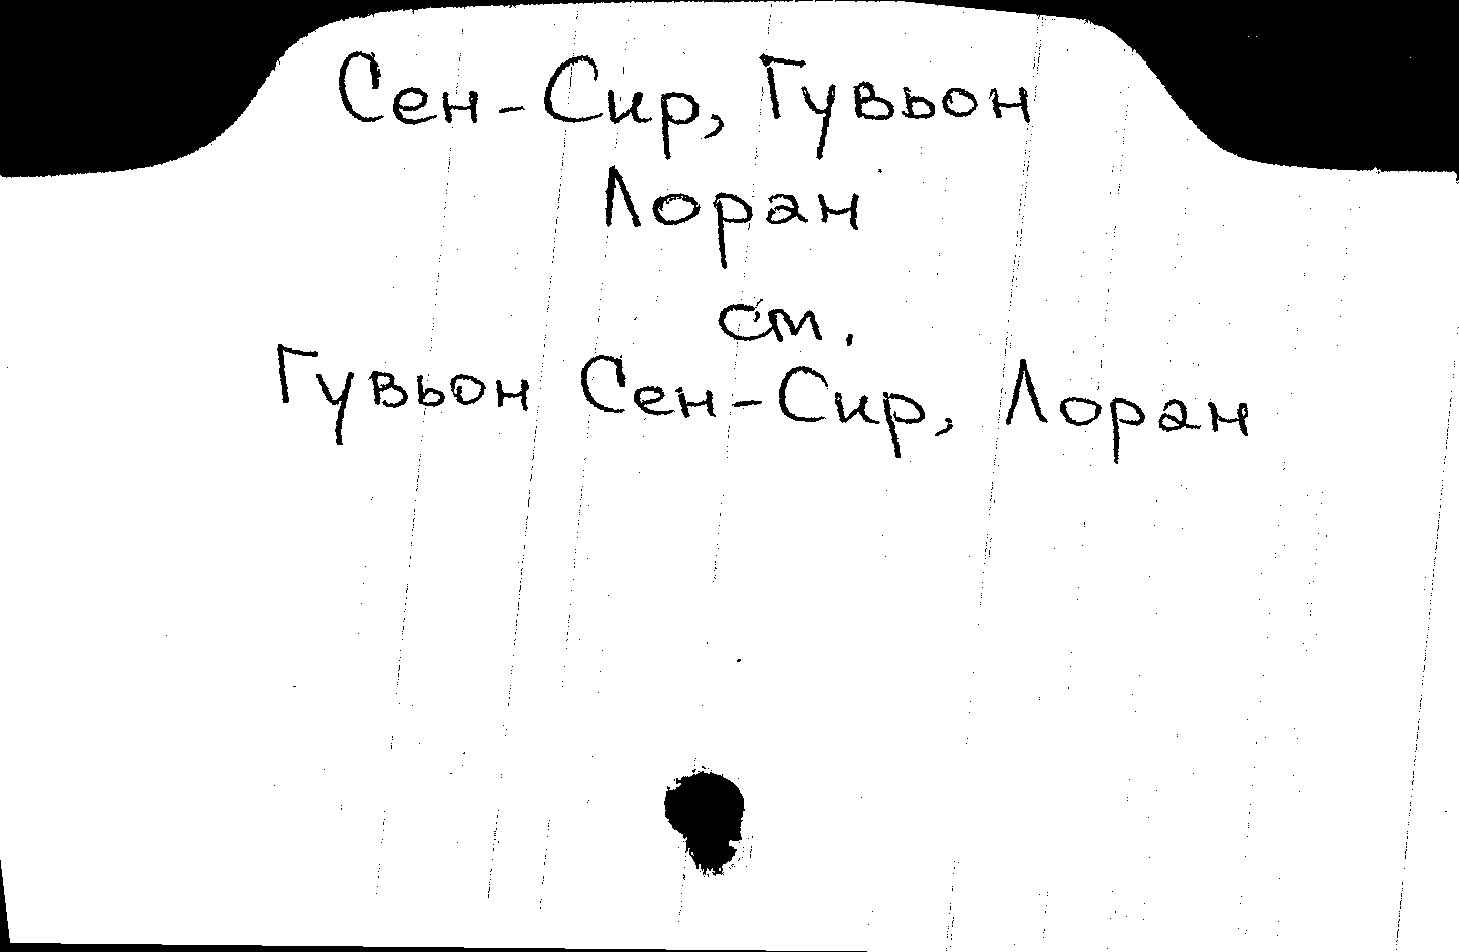 Сен-Сир, Гувьон
Лоран
см.
Гувьон Сен-Сир, Лоран